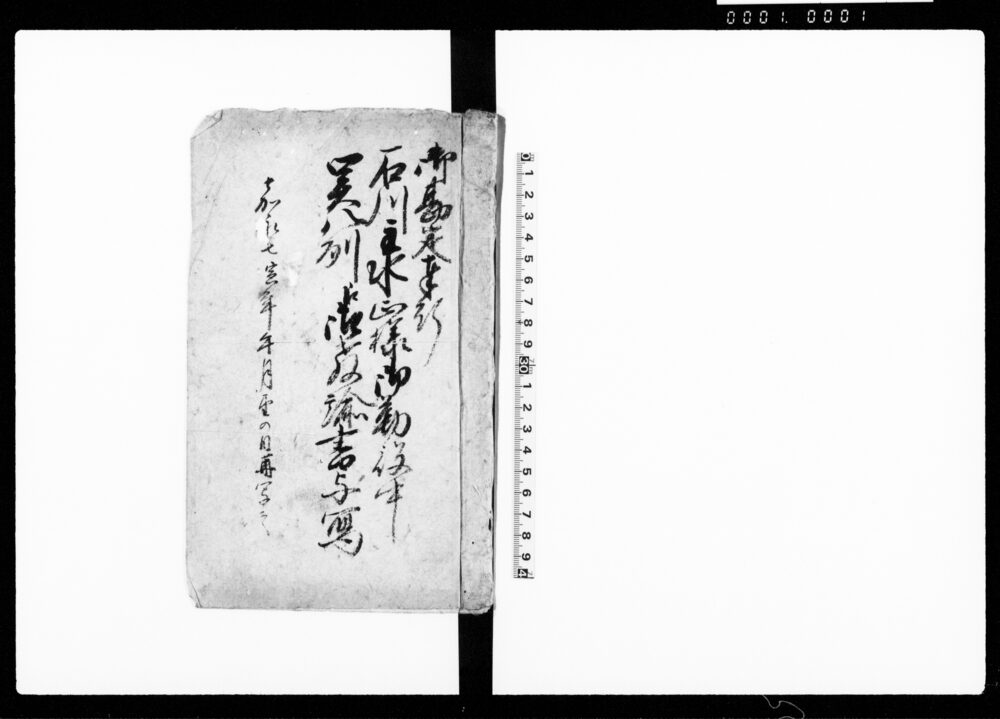 0001.0001
御勘定奉行
石川主水正様御勤役中
異列 教諭書与写
嘉永七寅年 年月 の日再写之
0 1 2 3 4 5 6 7 8 9 30 1 2 3 4 5 6 7 8 9 4